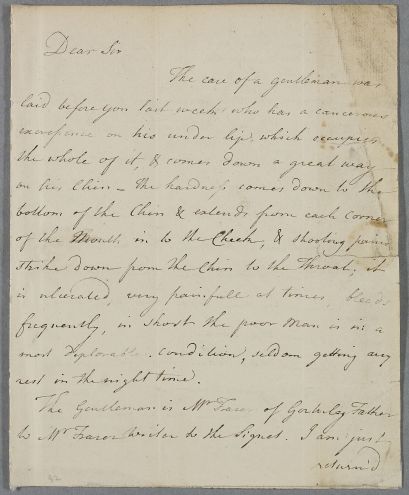 Dear Sir
The case of a gentleman was
laid before you last week who has a cancerous
excrescence on his under lip, which occupies
the whole of it, & comes down a great way
on his Chin - The hardness comes down to the
bottom of the Chin & extends from each Corner
of the Mouth in to the Cheek, & shooting pains
strike down from the Chin to the Throat; it
is ulcerated, very painfull at times, bleeds
frequently, in short the poor Man is in a
most Deplorable condition, seldom getting any
rest in the night time.
The Gentleman is Mr Frazer of Gortuleg Father
to Mr Frazer writer to the Signet. I am just
return'd